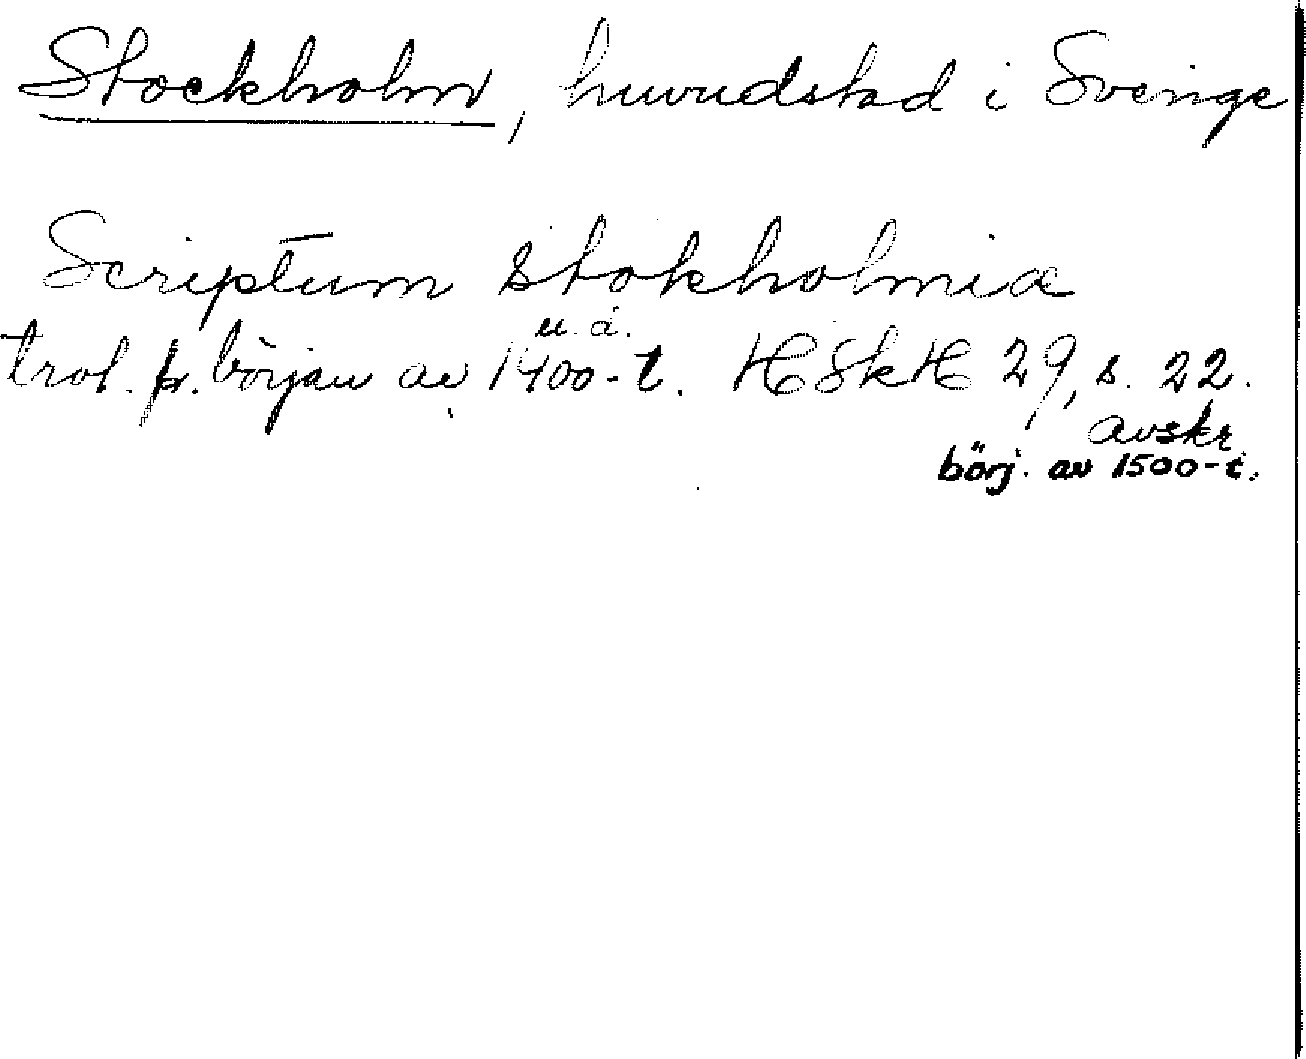 Stockholm, huvudstad i Sverige
Scriptum stokholmia
u. å.
trol. fr. början av 1400-t. HSkH 29, s. 22.
avskr.
börj. av 1500-t.